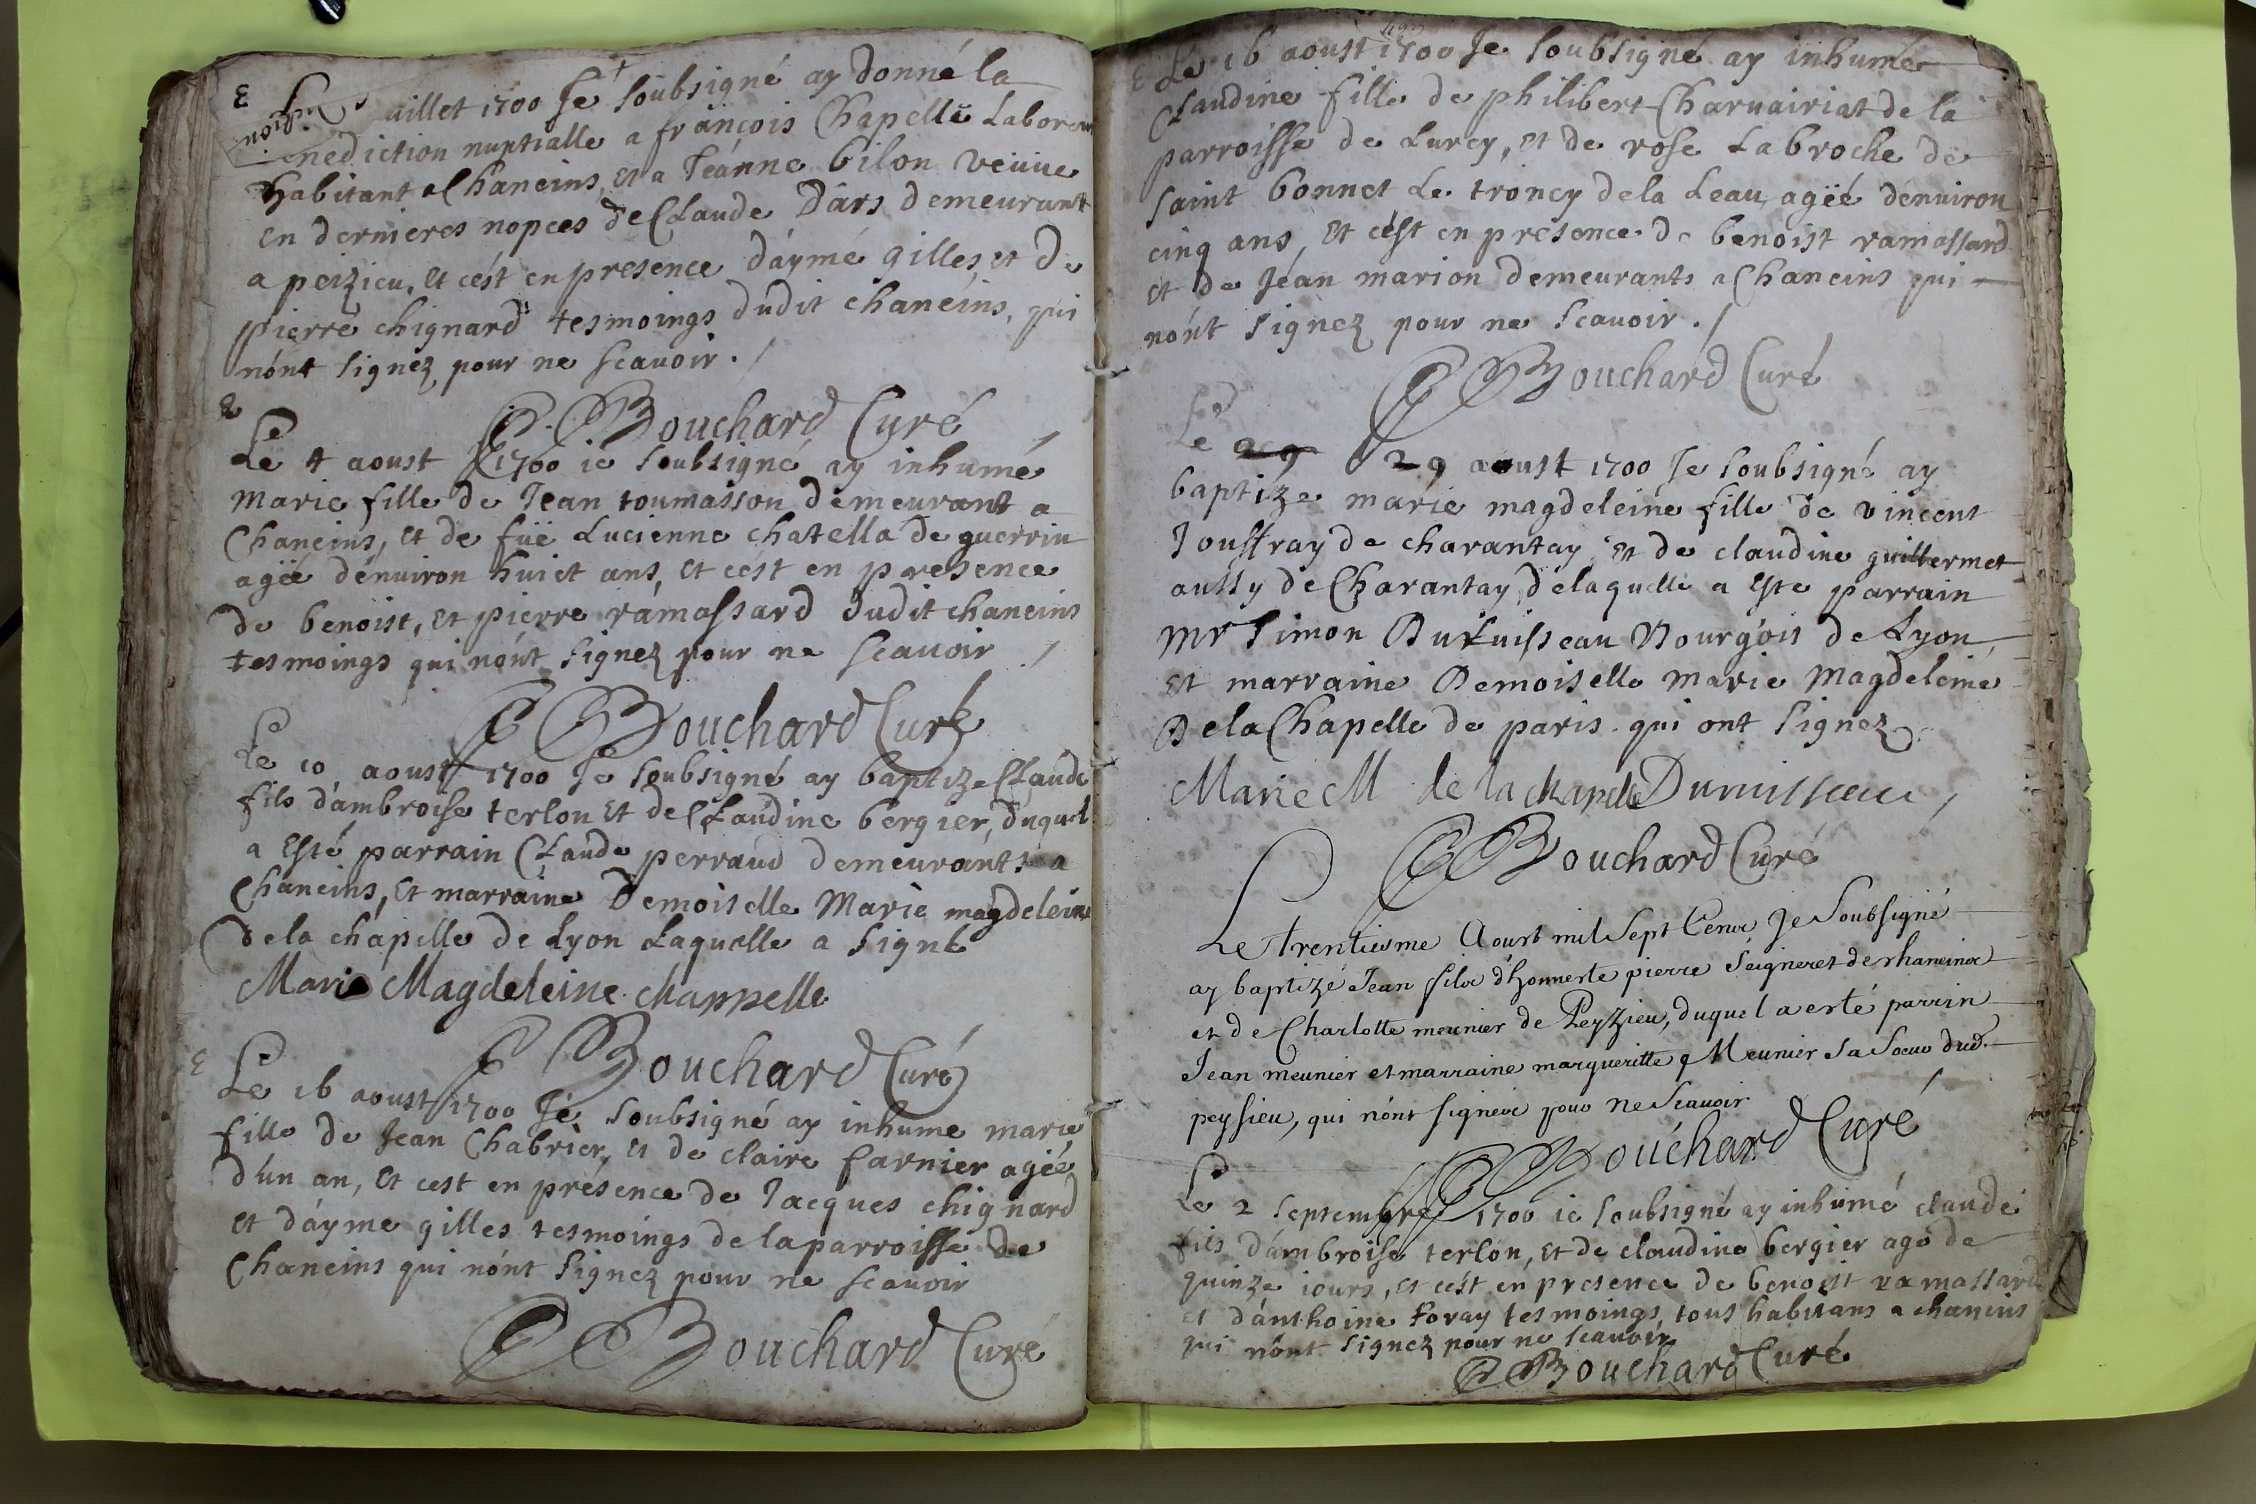 uillet 1700 Je soubsigné ay donné la
nediction nuptialle a françois Chapelle Laboreur
habitant a Chaneins, et a Jeánne bilon veuue
en dernieres nopces de Claude Dárs demeurant
a peizieu, et cést en presence d'áymé gilles et de
pierre chignard tesmoings dudit chaneins, qui
nónt signez pour ne scauoir ./
Bouchard Curé
Le 4 aoust 1700 ie soubsigné ay inhumé
marie fille de Jean toumasson demeurant a
Chaneins, et de füe Lucienne chatella de guerrin
agée dénuiron huict ans, et cést en presence
de benoist, et pierre rámassard dudit chaneins
tesmoings qui nónt signez pour ne scauoir ./
Bouchard Curé
Le 10 aoust 1700 Je soubsigné ay baptize Claude
fils dámbroise terlon et de Claudine bergier, duquel
a esté parrain Claude perraud demeuránts a
Chaneins, et marraine Demoiselle Marie magdeleine
de la chápelle de Lyon Laquelle a signé
Marie Magdeleine chappelle
Bouchard Curé
Le 16 aoust 1700 Je soubsigné ay inhume marie
fille de Jean Chabrier, et de claire farnier agéé
d'ún an, et cest en présence de Jacques chignard
et d'áyme gilles tesmoings de la parroisse de
Chaneins qui nónt signez pour ne scauoir
Bouchard Curé
Le 16 aoust 1700 Je soubsigné ay inhumé
Claudine fille de philibert Charuairiat de la
parroisse de Lurcy, et de rose Labroche de
saint bonnet Le troncy de la Leau, agéé dénuiron
cinq ans, et cést en présence de benoist ramassard
et de Jéan marion demeurants a Chaneins qui
nónt signez pour ne scauoir ./
Bouchard Curé
Le 29 29 aoust 1700 Je soubsigné ay
baptize marie magdeleine fille de vincent
Jouffray de charantay, et de claudine guillermet
aussy de Charantay, de laquelle a este parrain
Mr Simon Duruisseau Bourgois de Lyon,
et marraine Demoiselle marie Magdeleine
De la Chapelle de paris qui ont signez
Marie M de la chapelle Duruisseau
Bouchard Curé
Le trentiesme Aoust mil sept Cens Je Soubsigné
ay baptizé Jean fils d'honneste pierre Seigneret de chaneins
et de Charlotte meunier de Peyzieu, duquel a esté parrin
Jean meunier et marraine margueritte Meunier sa soeur dud.
peysieu, qui nónt signez pour ne Scauoir
Bouchard Curé
Le 2 septembre 1700 ie soubsigné ay inhumé claude
fils dámbroise terlon, et de claudine bergier agé de
quinze iours, et cést en presence de benoist ramassard
et d'ánthoine foray tesmoings, tous habitans a chaneins
qui nónt signez pour ne scauoir
Bouchard Curé